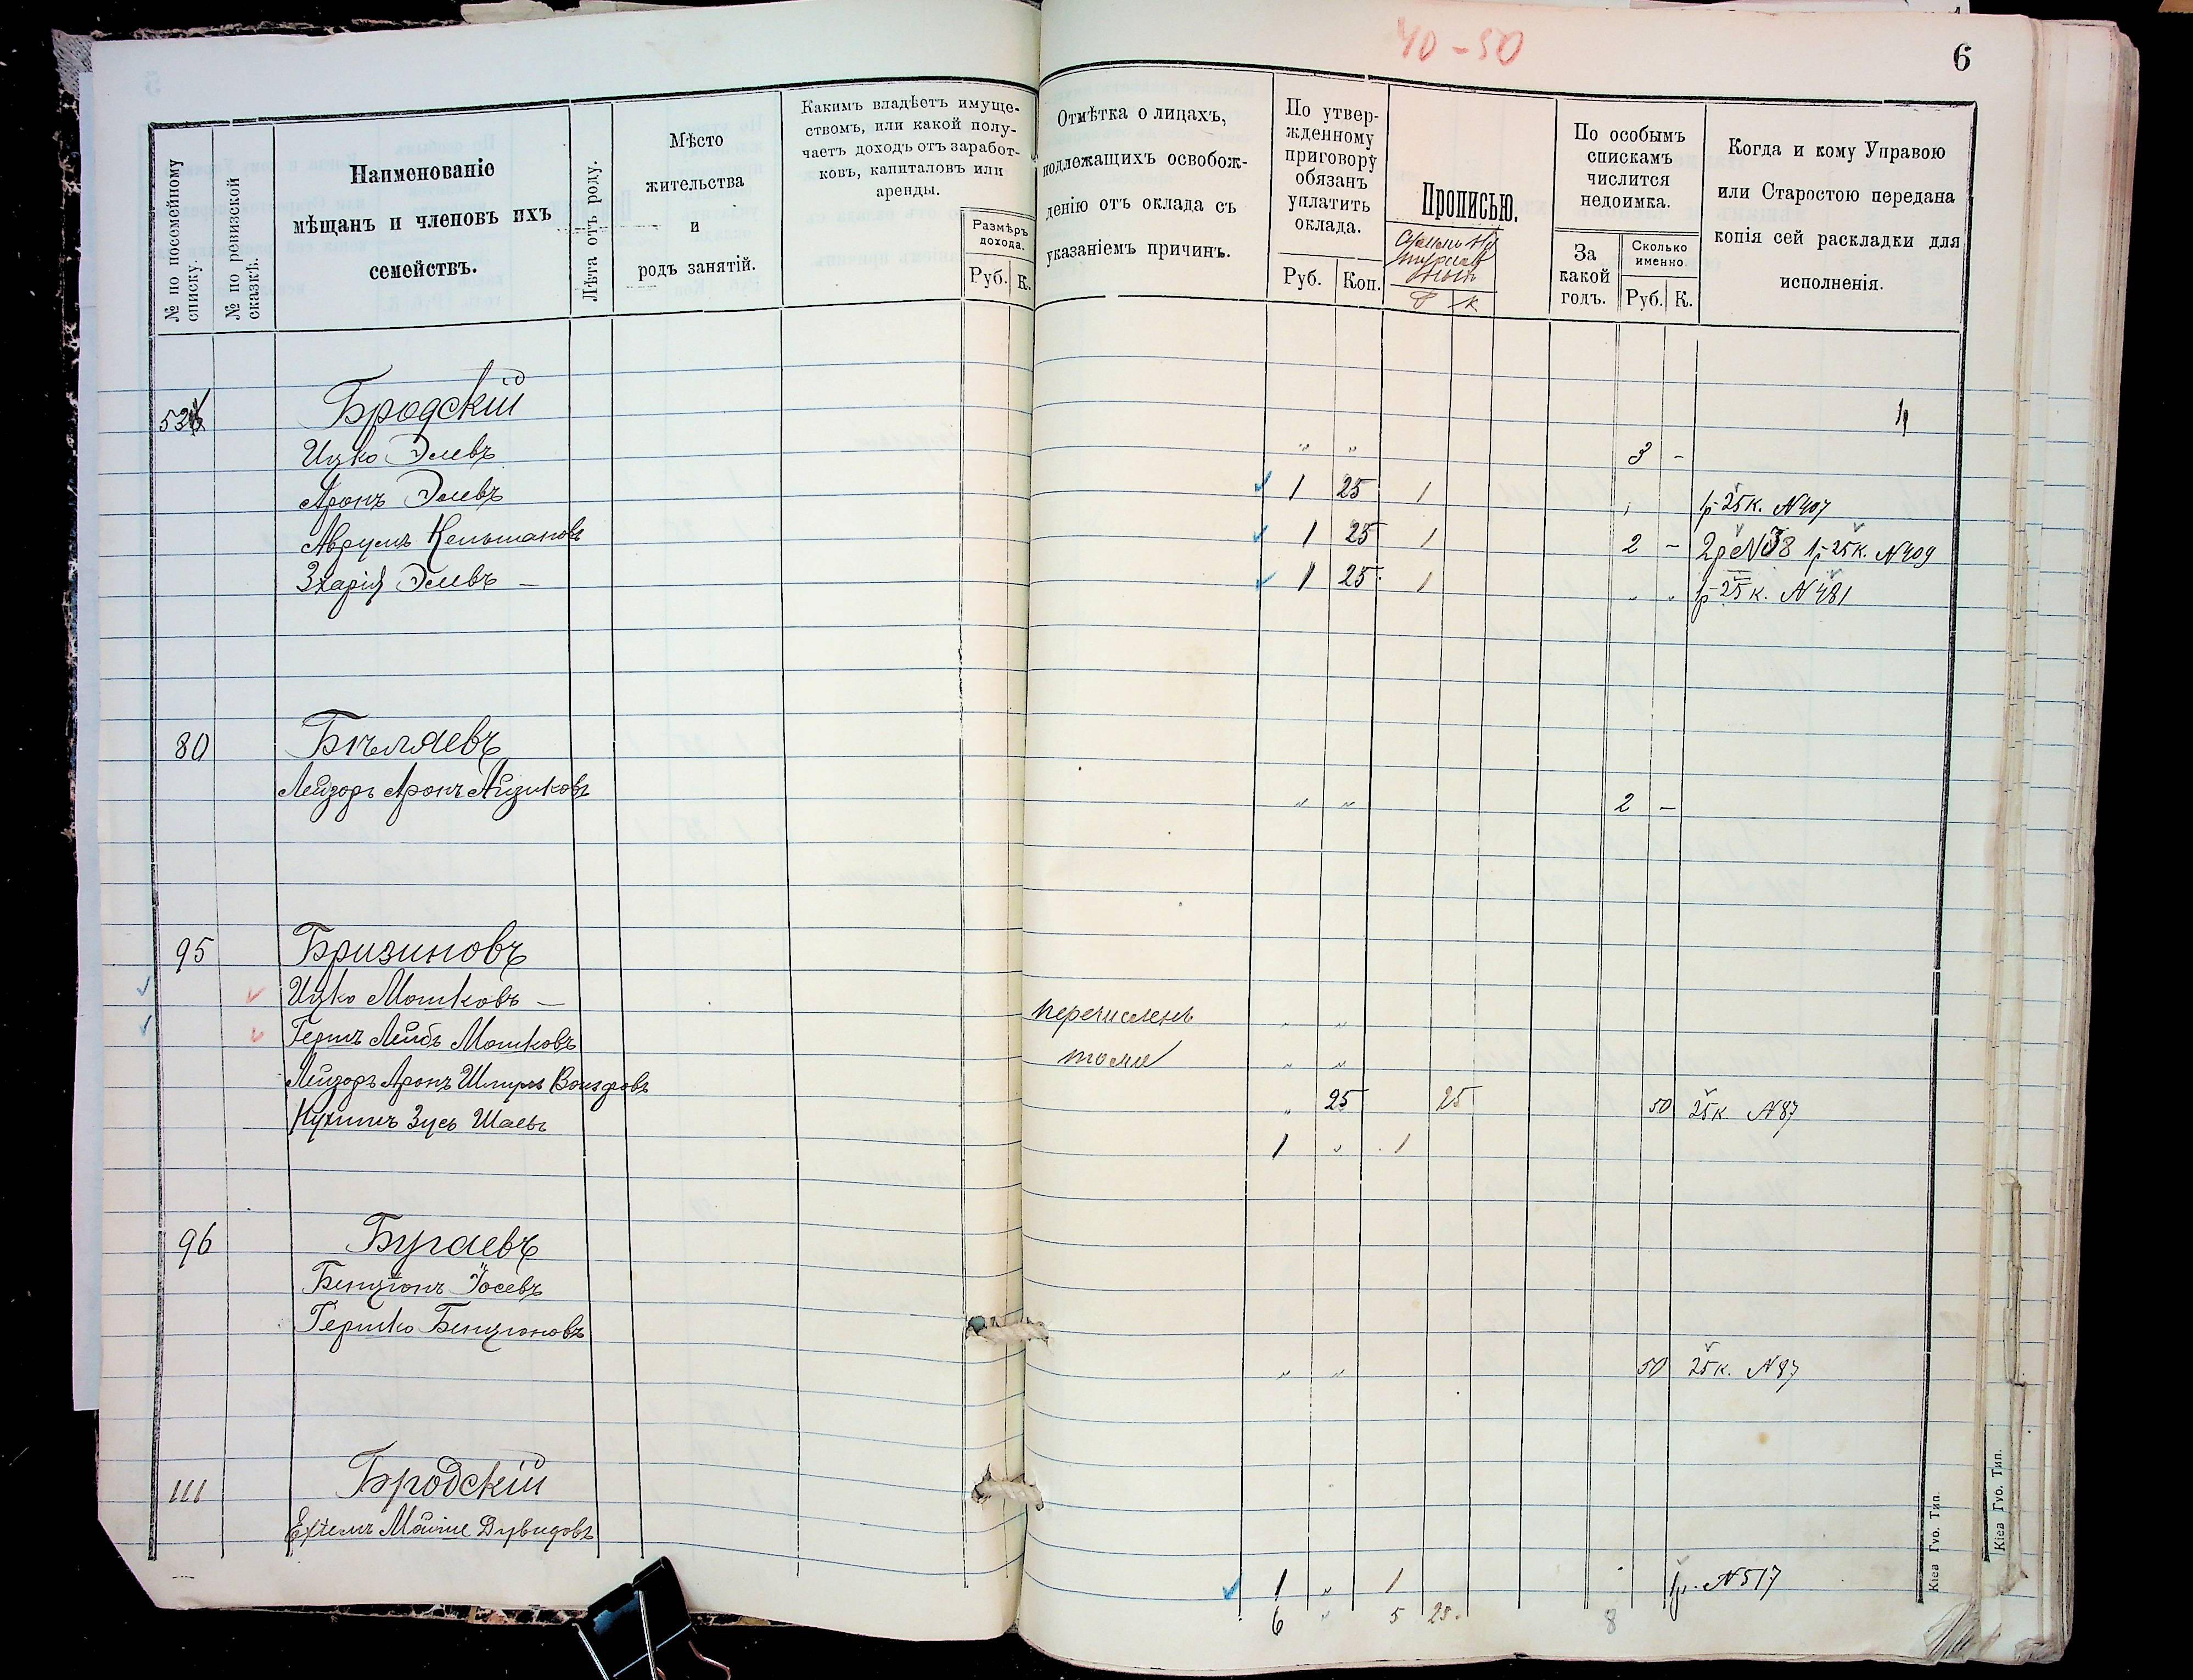 40-50
6
№ по посемейному списку.
№ по ревизской сказкѣ.
Наименованіе
мѣщанъ и членовъ ихъ
семействъ.
Лѣта отъ роду.
Мѣсто
жительства
и
родъ занятій.
Какимъ владѣетъ имуще-
ствомъ, или какой полу-
чаетъ доходъ отъ заработ-
ковъ, капиталовъ или
аренды.
Размѣръ
дохода.
Руб. К.
Отмѣтка о лицахъ,
подлежащихъ освобож-
денію отъ оклада съ
указаніемъ причинъ.
По утвер-
жденному
приговору
обязанъ
уплатить
оклада.
Руб. Коп.
Прописью.
Р К
По особымъ
спискамъ
числится
недоимка.
За
какой
годъ.
Сколько
именно.
Руб. К.
Когда и кому Управою
или Старостою передана
копія сей раскладки для
исполненія.
Бродскій
Ицко Элевъ „ „ 3 -
Аронъ Элевъ 1 25 1 1р 25к. №407
Аврумъ Кельмановъ 1 25 1 2 - 2р №38 1р 25к. №409
Зхарія Элевъ — 1 25 1 „ „ 1р 25к. №481
80 Бѣляевъ
Лейзоръ Аронъ Айзиковъ „ „ 2 —
95 Бризиновъ
Ицко Мошковъ — перечисленъ „ „
Гершъ Лейбъ Мошковъ тоже „ „
Лейзоръ Аронъ Шмулъ „ 25 25 50 25к. №87
Нухимъ Зусь Шаевъ 1 „ 1
96 Бугаевъ
Бенціонъ Іосевъ
Гершко Бенціоновъ „ „ 50 25к. №87
111 Бродскій
Мойше Дувидовъ 1 „ 1 1р. №517
6 „ 5 25. 8
Кіев Губ. Тип.
Кіев Губ. Тип.